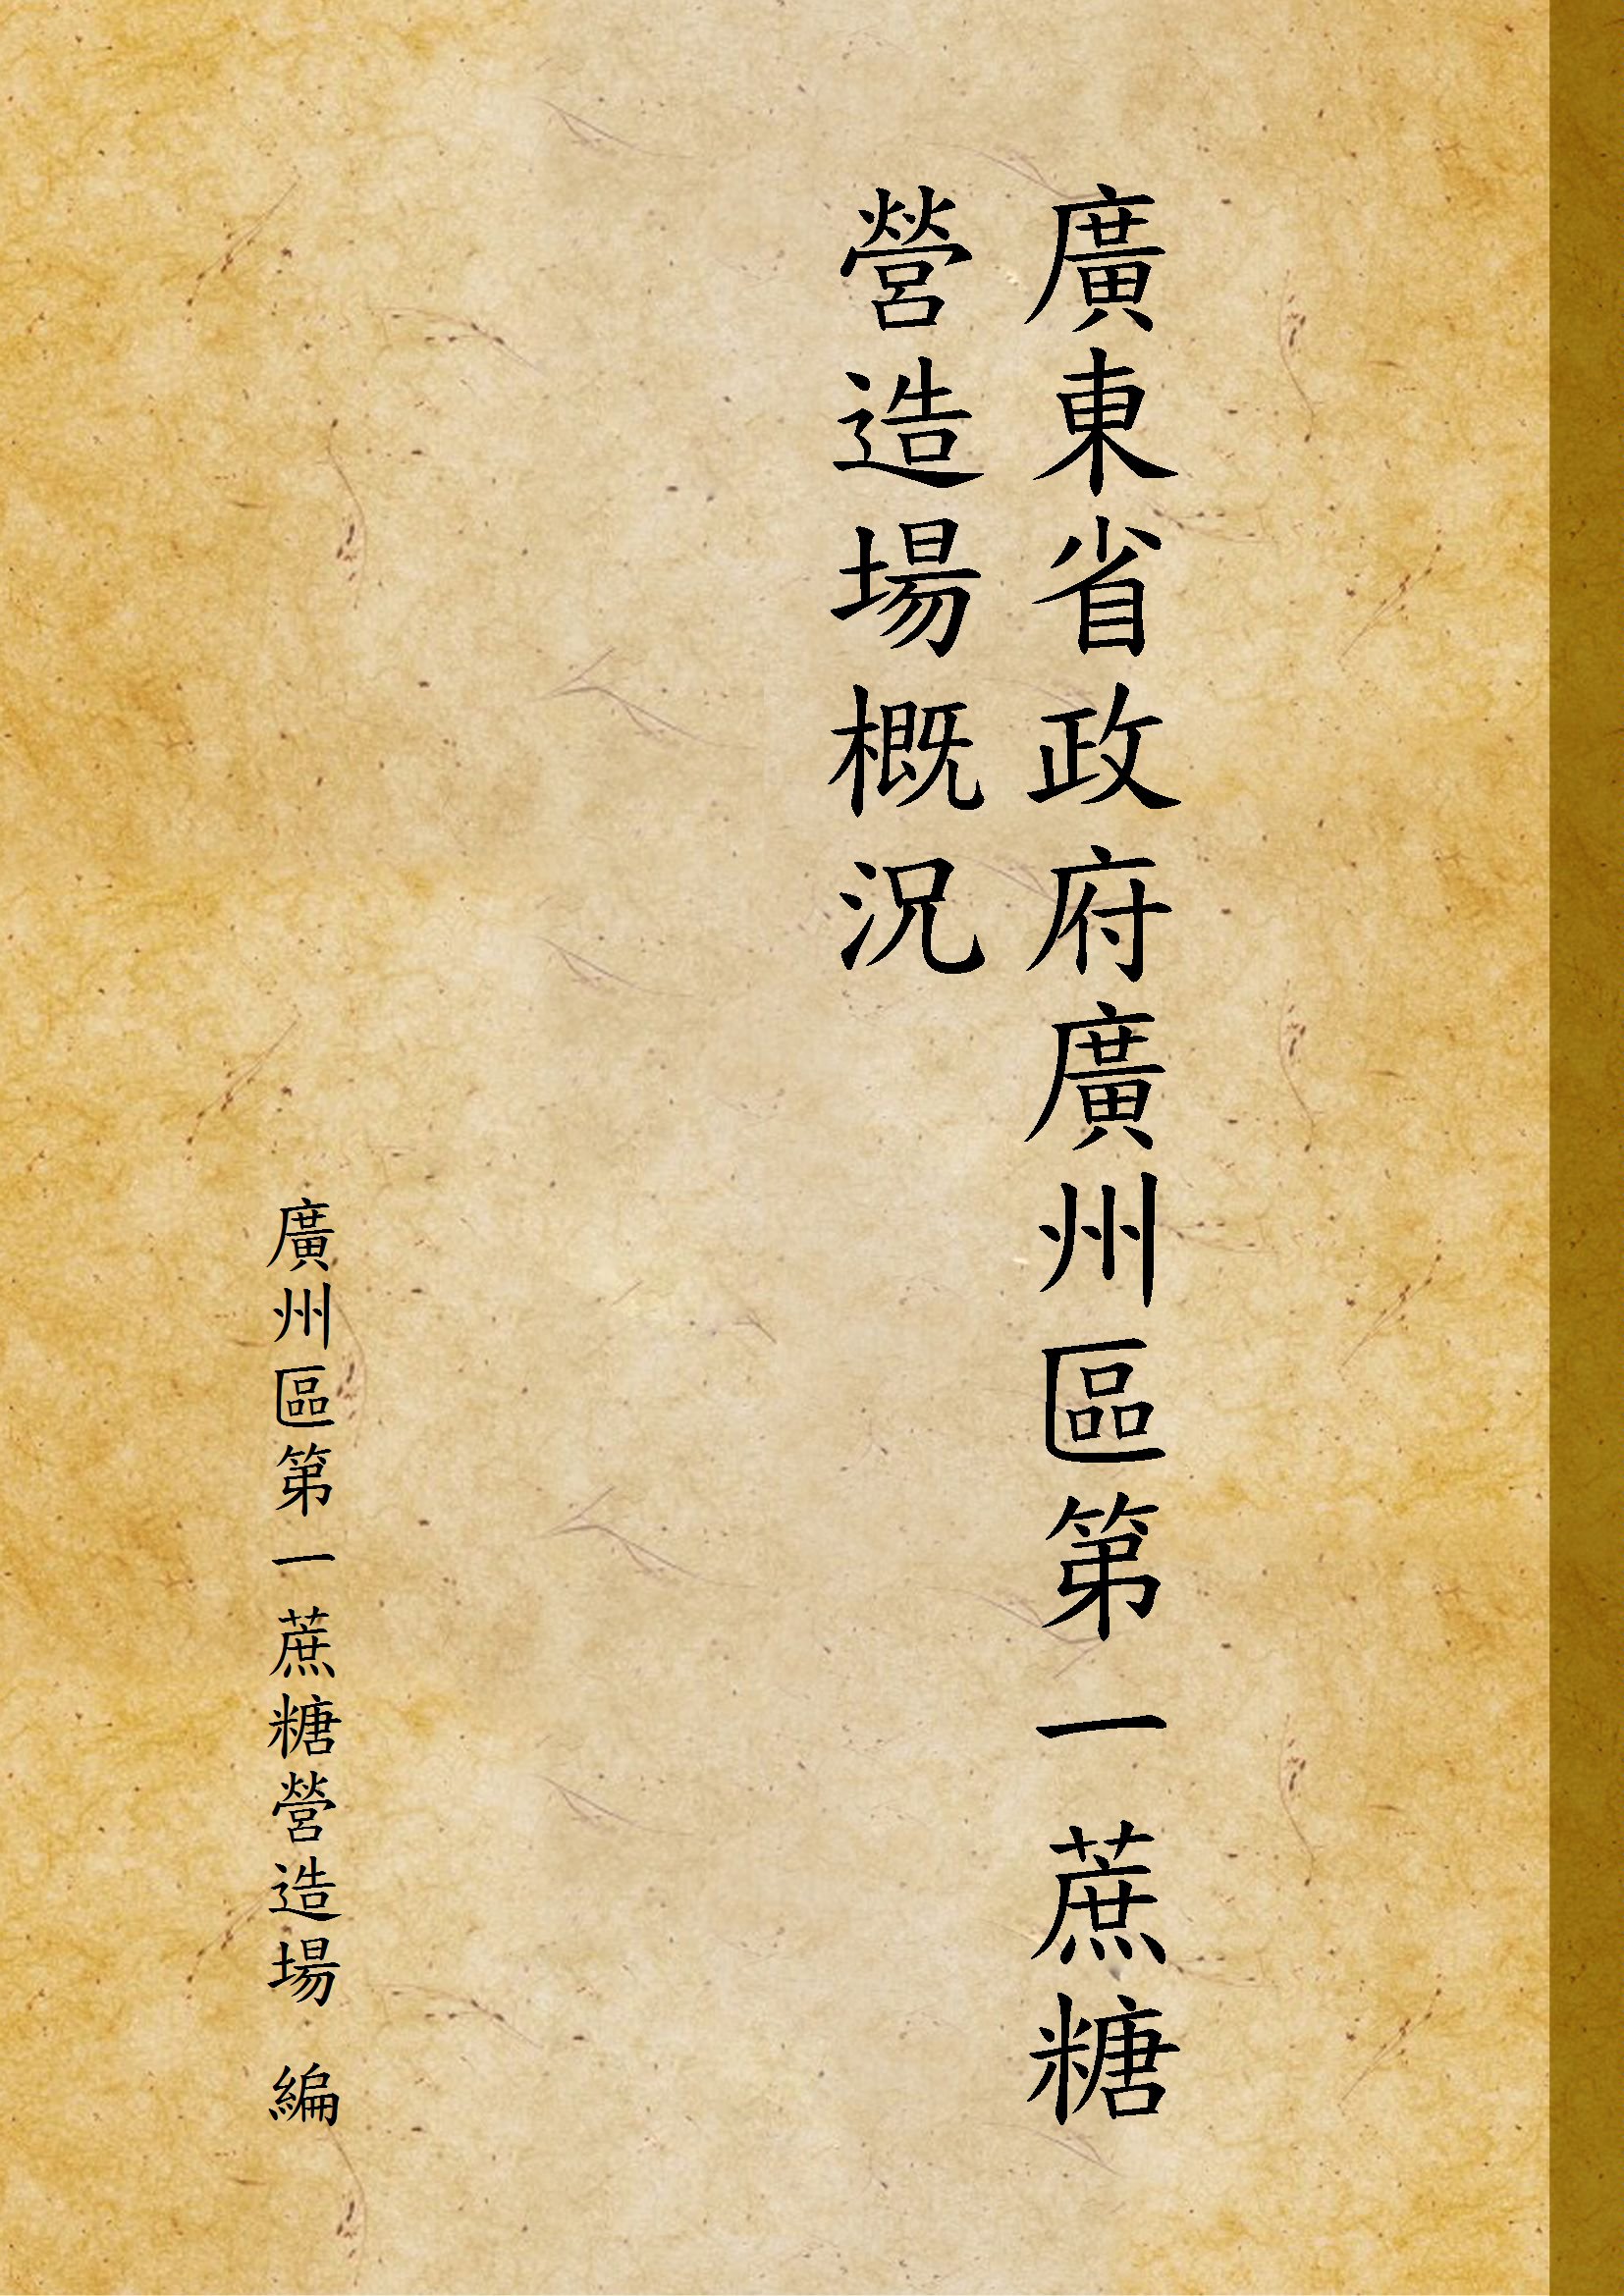 廣東省政府廣州區第一蔗糖
營造場概況
廣州區第一蔗糖營造場 編